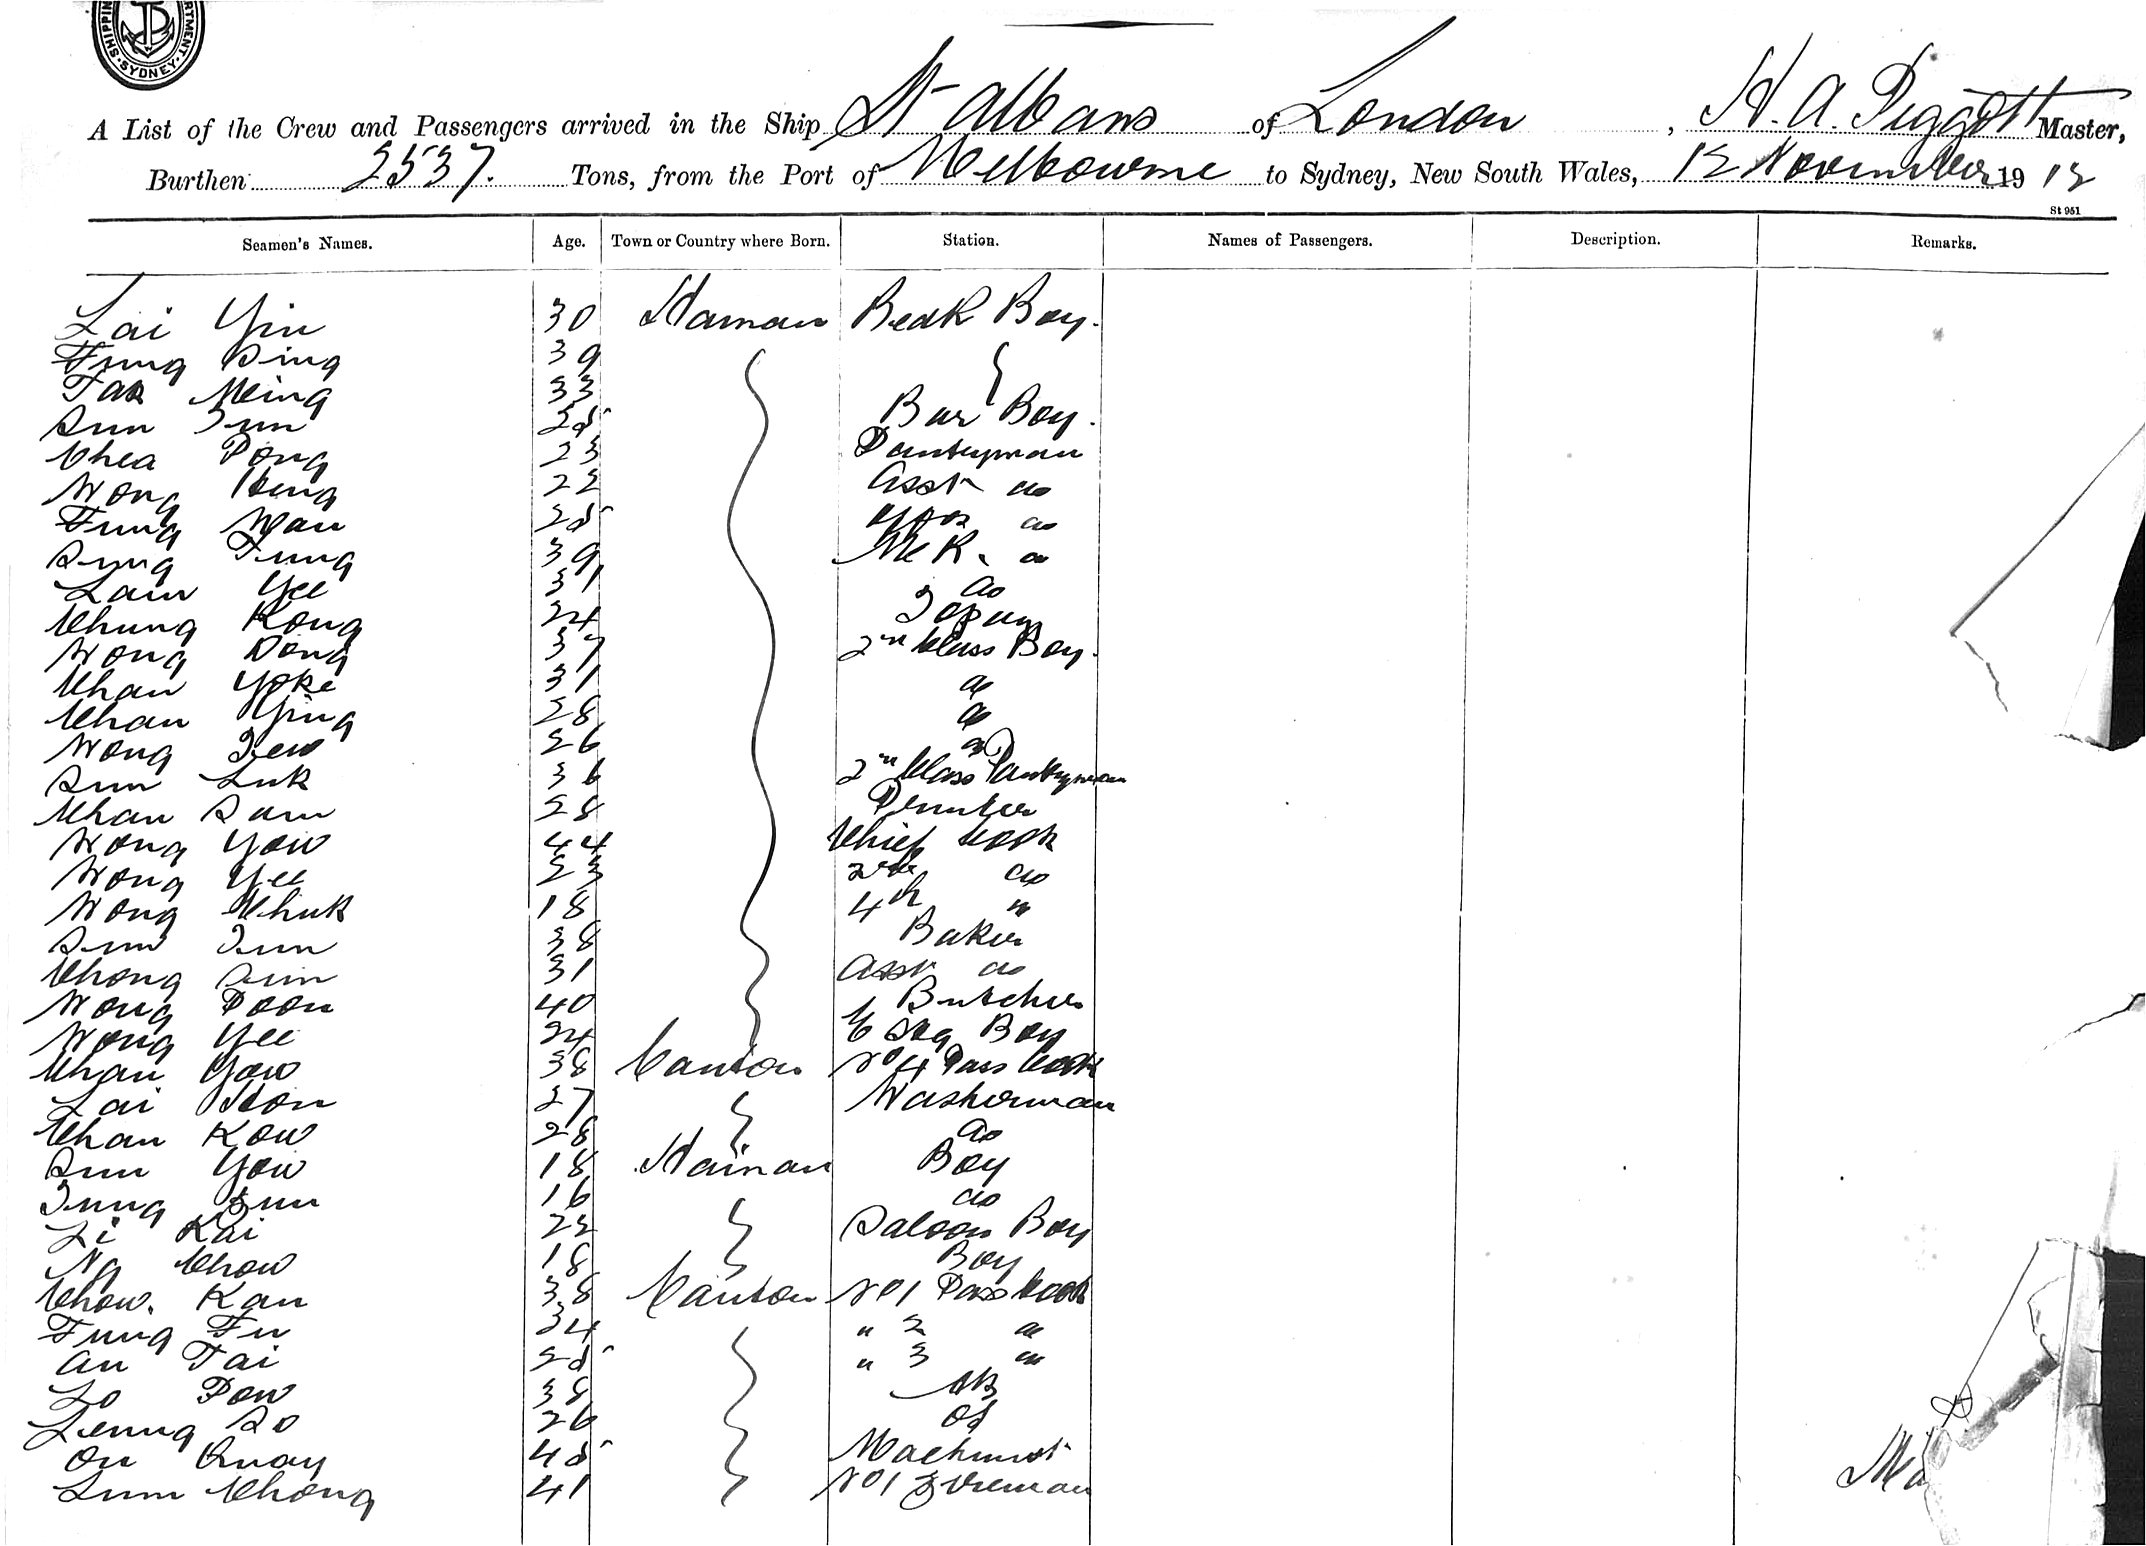 SHIPPING DEPARTMENT SYDNEY
A List of the Crew and Passengers arrived in the Ship St Albans of London, H. A. Piggott Master,
Burthen 2537. Tons, from the Port of Melbourne to Sydney, New South Wales, 12 November 1912
St 951
Seamen's Names. Age. Town or Country where Born. Station. Names of Passengers. Description. Remarks.
Lai Yin 30 Hainan Boy.
Fung Sing 39
Tak Ming 33
Sun 25 Bar Boy.
Chea Pong 23 Pantryman
Wong Heng 22 Asst do
Fung Wan 25 do
Sung Fung 39 do
Lam Yee 31 do
Chung Kong 24
Wong Dong 37 2nd Class Boy.
Chan Yoke 31 do
Chan Ying 28 do
Wong 26 do
Sun Luk 36 2nd Class Pantryman
Chan Sam 28 Printer
Wong Yow 44 Chief Cook
Wong Yee 23 2nd do
Wong Chuk 18 4th "
Sun 38 Baker
Chong Sum 31 Asst do
Wong Poon 40 Butcher
Wong Yee 24 Boy
Chan Yow 38 Canton No 4 Pass Cook
Lai Hon 27 Washerman
Chan Kow 28 do
Sun Yow 18 Hainan Boy
16 do
Li Kai 22 Saloon Boy
Ng Chow 18 Boy
Chow. Kan 38 Canton No 1 Pass Cook
Fung Fu 34 " 2 "
Au Tai 25 " 3 "
Lo Pow 38 AB
Leung So 26 OS
On Quay 45 Machinist
Lum Chong 41 No 1 Fireman